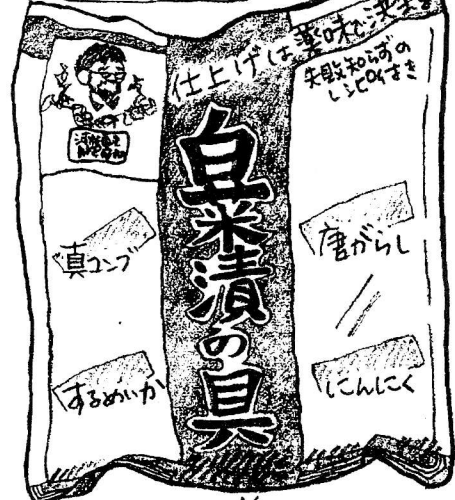 仕上げは薬味で決まる
失敗知らずの
レシピ付き
白菜漬の具
真コンブ
唐がらし
するめいか
にんにく